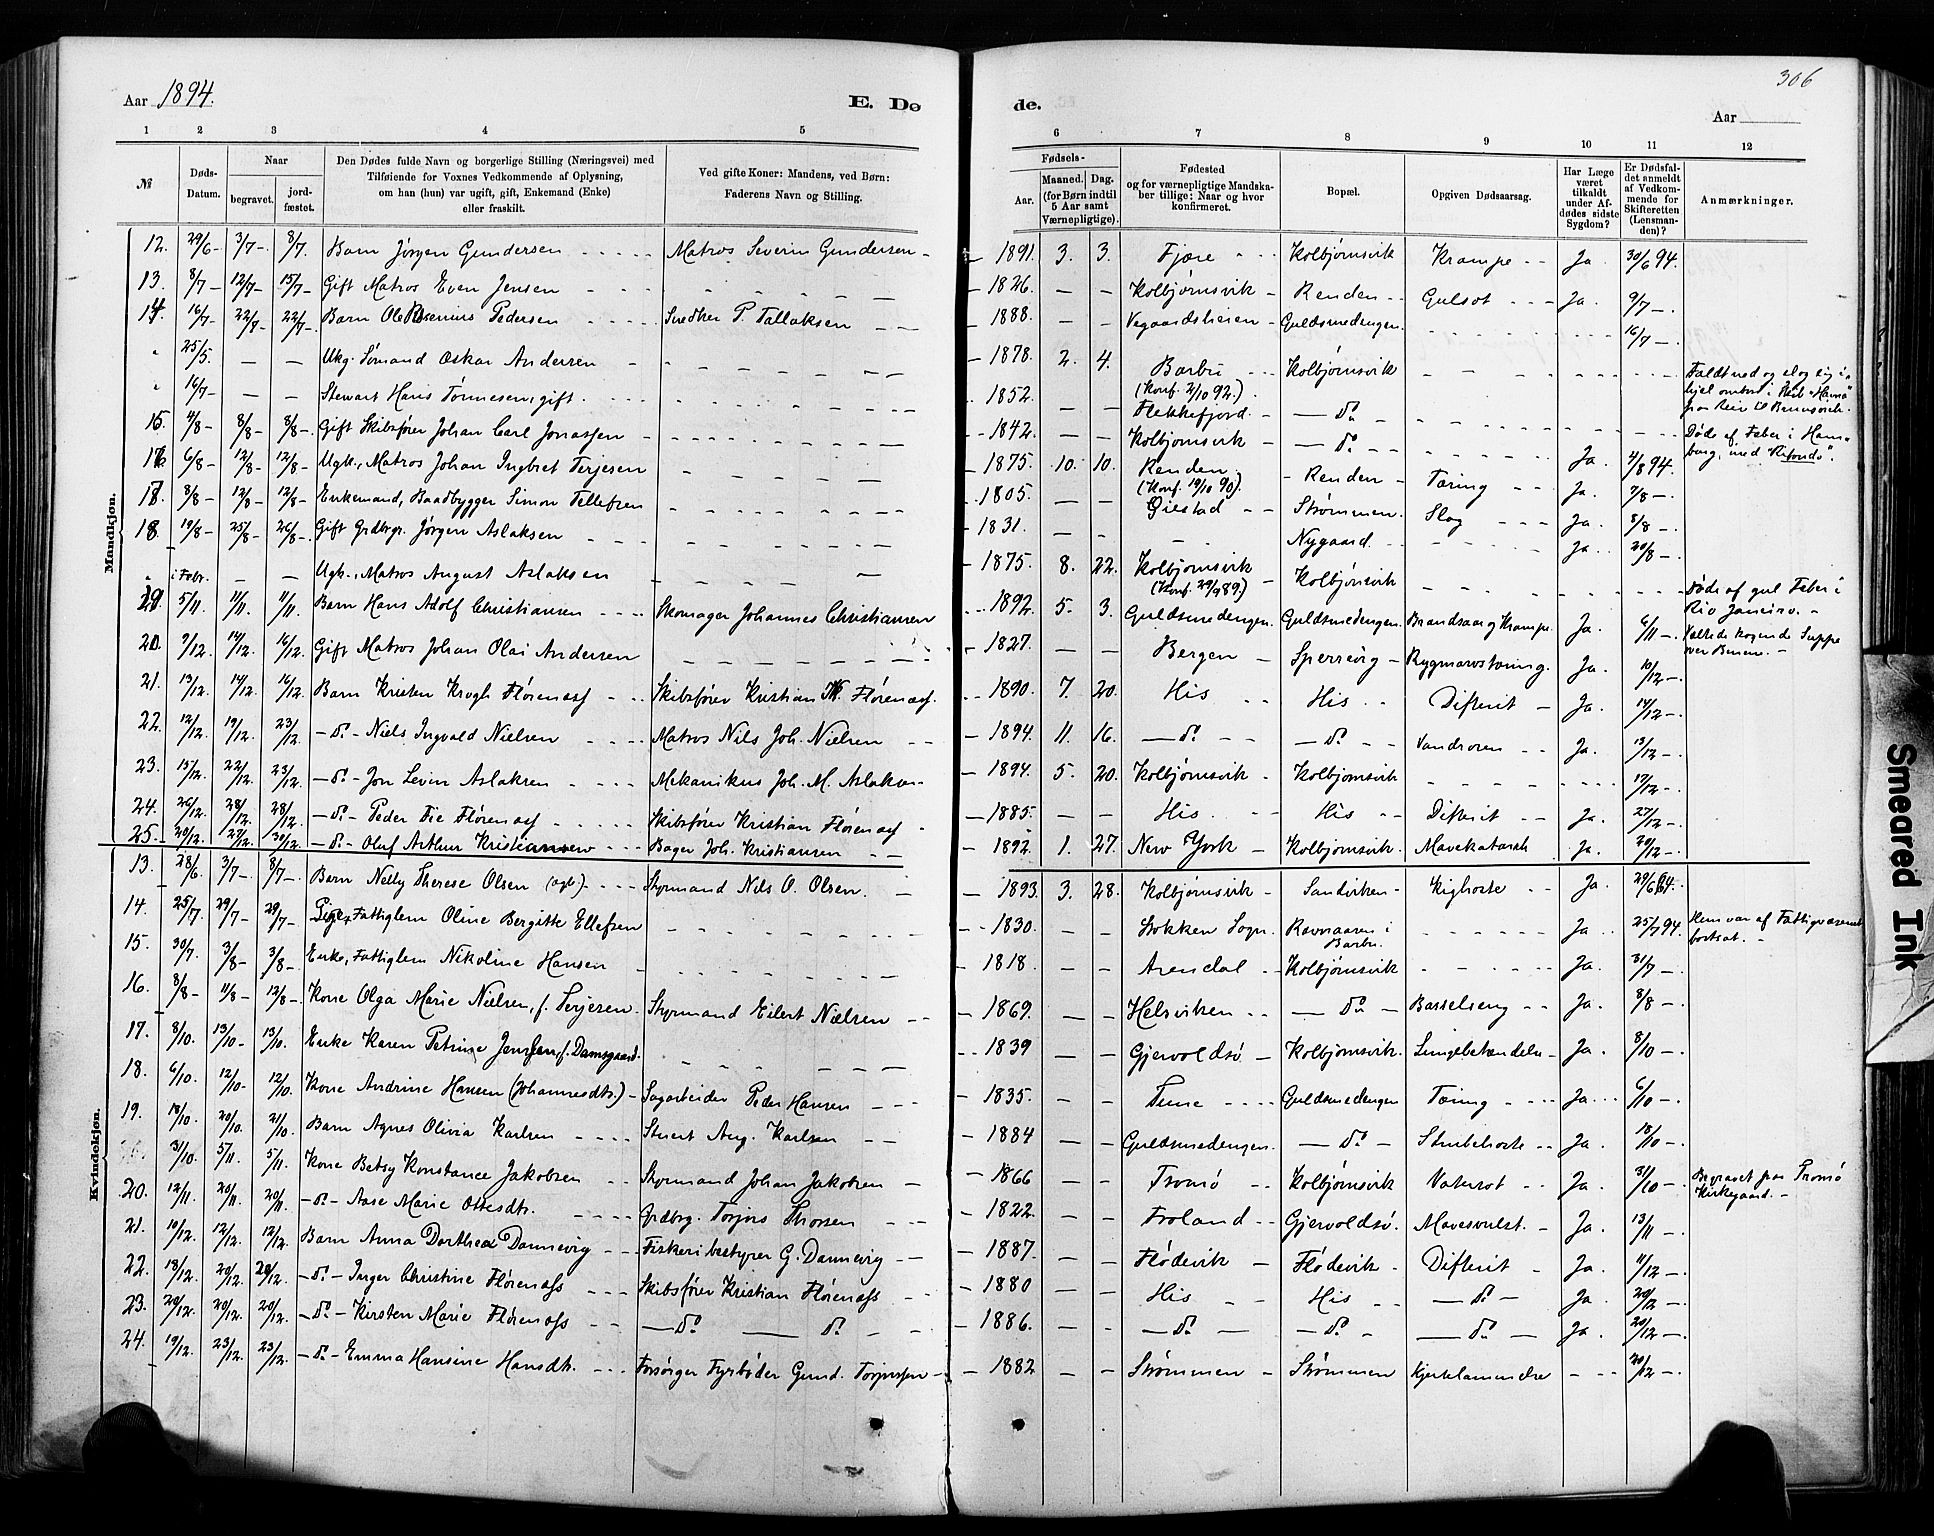 306
Aar 1894.
E. Dø
de.
Aar
1 2 3 4 5 6 7 8 9 10 11 12
№
Døds-Datum.
Naar
begravet.
jord-fæstet.
Den Dødes fulde Navn og borgerlige Stilling (Næringsvei) med
Tilføiende for Voxnes Vedkommende af Oplysning,
om han (hun) var ugift, gift, Enkemand (Enke)
eller fraskilt.
Ved gifte Koner: Mandens, ved Børn:
Faderens Navn og Stilling.
Fødsels-
Aar.
Maaned. Dag.
(for Børn indtil
5 Aar samt
Værnepligtige).
Fødested
og for værnepligtige Mandska-
ber tillige: Naar og hvor
konfirmeret.
Bopæl.
Opgiven Dødsaarsag.
Har Læge
været
tilkaldt
under Af-
dødes sidste
Sygdom?
Er Dødsfal-
det anmeldt
af Vedkom-
mende for
Skifteretten
(Lensman-
den)?
Anmærkninger.
Mandkjøn.
12. 29/6 – 3/7 – 8/7. Barn Jørgen Gundersen Matros Severin Gundersen – 1891. 3. 3. Fjære Kolbjørnsvik Krampe Ja. 30/6 94.
13. 8/7 – 12/7 – 15/7 – Gift Matros Even Jensen – 1826. – – Kolbjørnsvik – Renden Gulsot Ja. 9/7 –
14. 16/7 – 22/8 – 22/7 – Barn Ole Rasmus Pedersen Snedker P. Tallaksen – 1888. – – Vegaardsheien – Guldsmedengen. 16/7 –
" 25/5. – – Ukg. Sømand Oskar Andersen – 1878. 2. 4. Barbu (Konf. 2/10 92.) Kolbjørnsvik Faldt ned og slog sig i-
hjel ombord i Skib "Havnø"
fra Reis til Brunsvik.
" 16/7 – – – Stewart Hans Tønnesen, gift. – 1852. – – Flekkefjord. – do – Døde af Feber i Ham-
burg, med "Rifondo".
15. 4/8 – 8/8 – 8/8 – Gift Skibsfører Johan Carl Jonassen – 1842. – – Kolbjørnsvik – do – Ja. 4/8 94.
16. 6/8 – 12/8 – 12/8 – Ugk., Matros Johan Ingbret Terjesen – 1875. 10. 10. Renden. (Konf. 19/10 90). – Renden – Tæring Ja. 7/8 –
17. 8/8 – 12/8 – 12/8 – Enkemand, Baadbygger Simon Tellefsen – 1805. – – Øiestad Strømmen. Slag Ja. 8/8 –
18. 19/8 – 25/8 – 26/8 – Gift Grdbrgr. Jørgen Aslaksen – 1831. – – Nygaard. Ja. 20/8 –
" i Febr. – – Ugk., Matros August Aslaksen – 1875. 8. 22. Kolbjørnsvik (Konf. 29/9 89.) – Kolbjørnsvik Døde af gul Feber i
Rio Janeiro. –
19. 5/11. 11/11 – 11/11. Barn Hans Adolf Christiansen Skomager Johannes Christiansen – 1892. 5. 3. Guldsmedengen. Guldsmedengen. Brandsaar og Krampe. Ja. 6/11 – Væltede kogende Suppe
over Benene. –
20. 7/12. 14/12. 16/12. Gift Matros Johan Olai Andersen – 1827. – – Bergen – Sperrevig – Rygmarvstæring. Ja. 10/12 –
21. 13/12. 14/12. 16/12. Barn Kristen Krogh Flørenæss Skibsfører Kristian Flørenæss. – 1890. 7. 20. His His Difterit – Ja. 14/12 –
22. 12/12. 19/12. 23/12. – do – Niels Ingvald Nielsen Matros Nils Joh. Nielsen – 1894. 11. 16. – do – – do – Vandsoren Ja. 13/12 –
23. 15/12. 22/12. 23/12. – do – Jon Levin Aslaksen Mekanikus Joh. M. Aslaksen – 1894. 5. 20. Kolbjørnsvik – Kolbjørnsvik 17/12 –
24. 26/12. 28/12. 28/12. – do – Peder Die Flørenæss Skibsfører Kristian Flørenæss – 1885. – – His. His Difterit Ja. 27/12 –
25. 20/12. 27/12. 30/12. – do – Oluf Arthur Kristiansen Bager Joh. Kristiansen – 1892. 1. 27. New York – Kolbjørnsvik – Mavekatarrh Ja. 20/12 –
Kvindekjøn.
13. 28/6 3/7 – 8/7 – Barn Nelly Therese Olsen (ugb.) Styrmand Nils O. Olsen. – 1893. 3. 28. Kolbjørnsvik – Sandviken – Kighoste Ja. 29/6 94.
14. 25/7 29/7 – 29/7 – Pige, Fattiglem Oline Bergitte Ellefsen – 1830. – – Stokken Sogn. Ravnaaren i
Barbu. Ja. 25/7 94. Hun var af Fattigvæsenet
bortsat. –
15. 30/7. 3/8 – 3/8 – Enke, Fattiglem Nikoline Hansen – 1818. – – Arendal Kolbjørnsvik Ja. 31/7 –
16. 8/8 – 11/8 – 12/8 – Kone Olga Marie Nielsen, f. Terjesen. Styrmand Eilert Nielsen – 1869. – – Helsviken – do – Barselseng Ja. 8/8 –
17. 8/10. 13/10 – 13/10. Enke Karen Petrine Jensen, f. Damsgaard. – 1839 – – Gjervoldsø – Kolbjørnsvik. Lungebetændelse – Ja. 8/10 –
18. 6/10. 12/10 – 12/10. Kone Andrine Hansen (Johannesdtr.) – Sagarbeider Peder Hansen – 1835. – – Tune Guldsmedengen Tæring Ja. 6/10 –
19. 18/10. 20/10. 21/10. Barn Agnes Olivia Karlsen Stuert Aug. Karlsen – 1884 – – Guldsmedengen. – do – Strubehoste Ja. 18/10 –
31/10. 5/11. 5/11. Kone Betsy Konstance Jakobsen Styrmand Johan Jakobsen – 1866 – – Tromø Kolbjørnsvik Vatersot – Ja. 31/10 – Begravet paa Tromø
Kirkegaard. –
20. 12/11. 20/11. 20/11. – do – Aase Marie Ottesdtr. Grdbrg. Torjus Thorsen – 1822. – – Froland Gjervoldsø. Mavesvulst. – Ja. 13/11 –
21. 10/12. 12/12. 12/12. Barn Anna Dorthea Dannevig Fiskeribestyrer G. Dannevig – 1887. – – Flødevik – Flødevik – Difterit – Ja. 11/12 –
22. 18/12. 20/12 20/12. – do – Inger Christine Flørenæss Skibsfører Kristian Flørenæss – 1880 – – His His – do – Ja. 20/12 –
23. 20/12. 20/12. 20/12. – do – Kirsten Marie Flørenæss – do – do – 1886. – – – do – – do – – do – Ja. 20/12 –
24. 19/12. 23/12. 23/12. – do – Emma Hansine Hansdtr. Forsørger Fyrbøder Gund. Torjussen – 1882 – – Strømmen – Strømmen Kjertelammedre 20/12 –
Smeared Ink